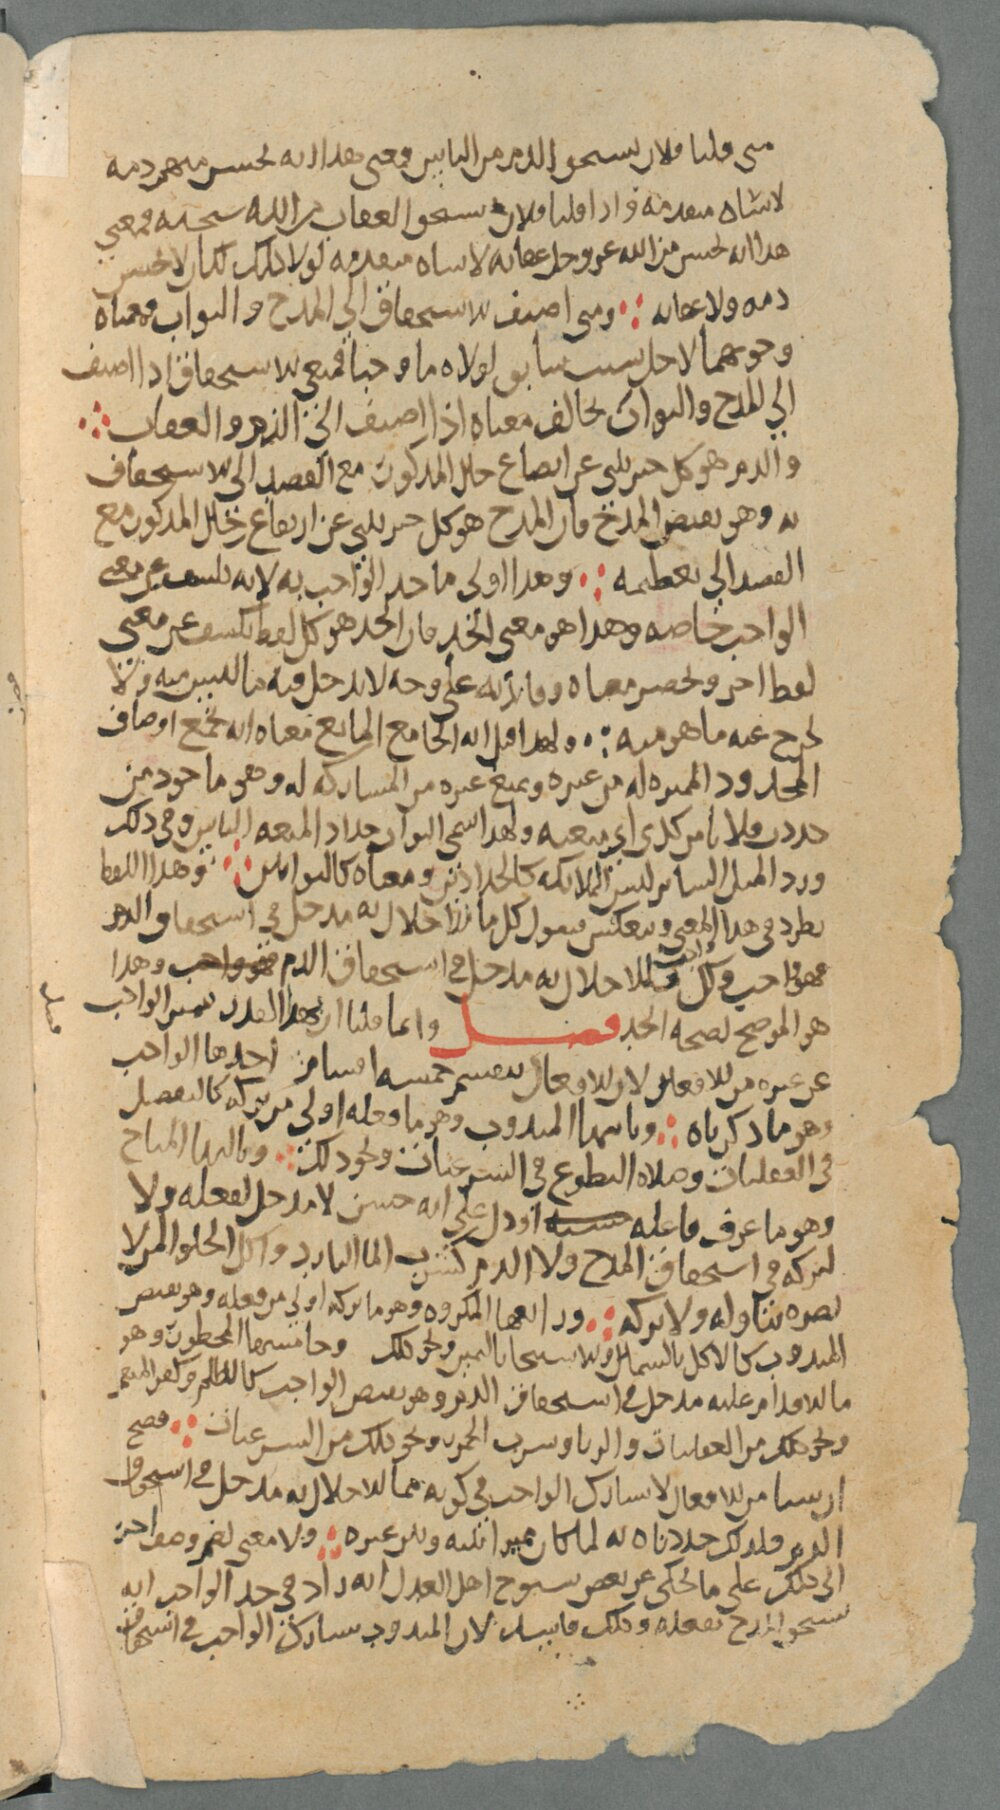 متى قلنا فلان يستحق الذم من الناس فمعنى هذا انه يحسن منهم ذمه
لاشياء متقدمة واذا قلنا فلان يستحق العقاب من الله سبحنه فمعنى
هذا انه يحسن من الله عز وجل عقابه لاشياء متقدمة لولا ذلك لكان لا يحسن
ذمه ولا عقابه ومتى اضيف الاستحقاق الى المدح والثواب فمعناه
وجوبهما لاجل سبب سابق لولاه ما وجبا فمعنى الاستحقاق اذا اضيف
الى المدح والثواب يخالف معناه اذا اضيف الى الذم والعقاب
والذم هو كل خبر ينبي عن اتضاع حال المذكور مع القصد الى الاستخفاف
به وهو نقيض المدح فان المدح هو كل خبر ينبي عن ارتفاع حال المذكور مع
القصد الى تعظيمه وهذا اولى ما حد الواجب به لانه يكشف عن معنى
الواجب خاصة وهذا هو معنى الحد فان الحد هو كل لفظ يكشف عن معنى
لفظ اخر ويحصر معناه وفائدته على وجه لا يدخل فيه ما ليس منه ولا
يخرج عنه ما هو منه ولهذا قيل انه الجامع المانع معناه انه يجمع اوصاف
المحدود المميزه له من غيره ويمنع غيره من المشاركه له وهو ماخوذ من
حددت فلانا من كذى اي منعته ولهذا سمي البواب حدادا لمنعه الناس وفي ذلك
ورد المثل الساير ليس الملائكه كالحدادين ومعناه كالبوابين وهذا اللفظ
يطرد في هذا المعنى وينعكس فنقول كل ما للاخلال به مدخل في استحقاق الذم
فهو واجب وكل واجب فللاخلال به مدخل في استحقاق الذم وهذا
هو الموضح لصحة الحد فصل وانما قلنا ان بهذا القدر يتميز الواجب
عن غيره من الافعال لان الافعال تنقسم خمسه اقسام احدها الواجب
وهو ما ذكرناه وثانيها المندوب وهو ما فعله اولى من تركه كالتفضل
في العقليات وصلاه التطوع في الشرعيات ونحو ذلك وثالثها المباح
وهو ما عرف فاعله او دل على انه حسن لا مدخل لفعله ولا
لتركه في استحقاق المدح ولا الذم كشرب الما البارد واكل الحلو المر لا
يضره تناوله ولا تركه ورابعها المكروه وهو ما تركه اولى من فعله وهو نقيض
المندوب كالاكل بالشمال والاستنجا باليمين ونحو ذلك وخامسها المحظور وهو
ما للاقدام عليه مدخل في استحقاق الذم وهو نقيض الواجب كالظلم وكفر المنعم
ونحو ذلك من العقليات والربا وشرب الخمر ونحو ذلك من الشرعيات فصح
ان شيا من الافعال لا يشارك الواجب في كونه مما للاخلال به مدخل في استحقاق
الذم فلذلك حددناه به لما كان مميزا بينه وبين غيره ولا معنى لضم وصف اخر
الى ذلك على ما يحكى عن بعض شيوخ اهل العدل انه زاد في حد الواجب انه
يستحق المدح بفعله وذلك فاسد لان المندوب يشارك الواجب في استحقاق
فصل